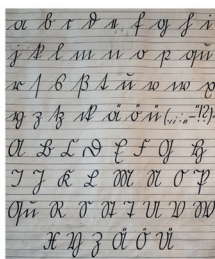 a b c d e f g h i
j k l m n o p qu
r ſ s ß t u v w x
y z tz ck ä ö ü (.,:;"–"!?)
A B C D E F G H
I J K L M N O P
Qu R S St T U V W
X Y Z Ä Ö Ü